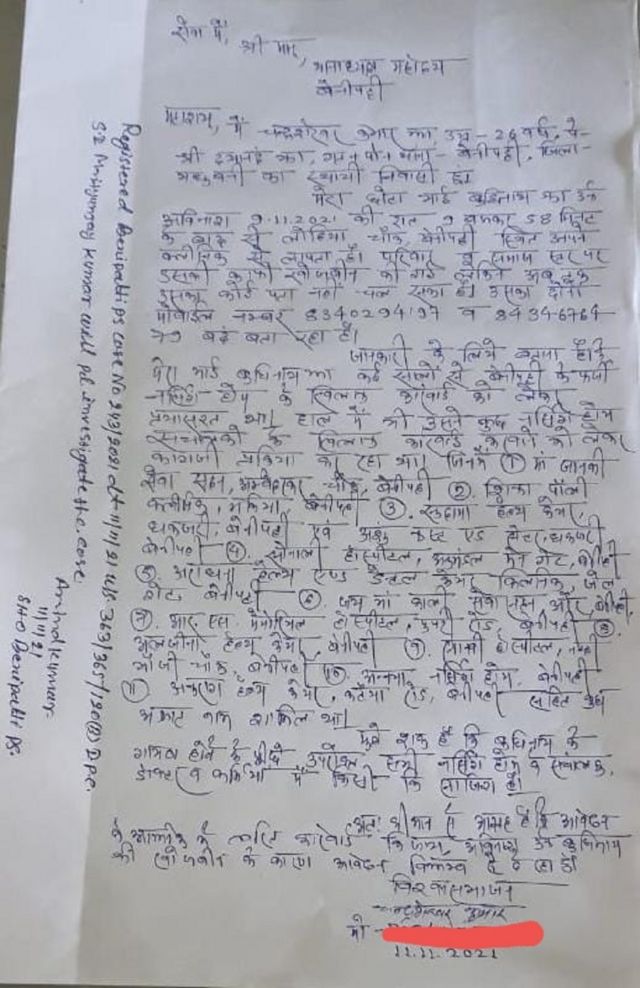 सेवा में,
श्री मान्,
थानाध्यक्ष महोदय
बेनीपट्टी
महाशय, मैं चन्द्रशेखर कुमार झा, उम्र - 26 वर्ष, पे-
श्री दयानंद झा, थाना - बेनीपट्टी, जिला-
मधुबनी का स्थायी निवासी हूँ
मेरा छोटा भाई बुद्धिनाथ झा उर्फ
अविनाश 9.11.2021 की रात 9 बजकर 58 मिनट
के बाद से लोहिया चौक, बेनीपट्टी स्थित अपने
क्लीनिक से लापता है। परिवार व समाज स्तर पर
उसकी काफी खोजबीन की गई लेकिन अब तक
उसका कोई पता नहीं चल सका है। उसका दोनों
मोबाईल नम्बर 8340294197 व 84346764
79 बंद बता रहा है।
जानकारी के लिये बताना है कि
मेरा भाई बुद्धिनाथ झा कई सालों से बेनीपट्टी के फर्जी
नर्सिंग होम के खिलाफ कारवाई को लेकर
प्रयासरत था। हाल में भी उसने कुछ नर्सिंग होम
संचालको के खिलाफ कारवाई करवाने को लेकर
कागजी प्रक्रिया कर रहा था। जिनमें ① मां जानकी
सेवा सदन, अम्बेदकर चौक, बेनीपट्टी ②. शिवा पॉली
क्लीनिक, बेनीपट्टी ③. सुदामा हेल्थ केयर,
धकजरी, बेनीपट्टी एवं अंशु एंड सेंटर, धकजरी
बेनीपट्टी ④. सोनाली हॉस्पीटल, अनुमंडल मेन गेट,
⑤ अराधना हेल्थ एण्ड डेन्टल केयर क्लिनिक, जेल
गेट, बेनीपट्टी ⑥. जय मां काली सेवा सदन
⑦. आर. एस. मेमोरियल हॉस्पीटल, रोड, बेनीपट्टी ⑧
अलजीना हेल्थ केयर, बेनीपट्टी ⑨. साक्षी हॉस्पीटल,
चौक, बेनीपट्टी ⑩. अनन्या नर्सिंग होम, बेनीपट्टी
⑪ अनुराग हेल्थ केयर, कटैया रोड, बेनीपट्टी सहित
नाम शामिल था।
मुझे शक है कि बुद्धिनाथ के
गायब होने के पीछे उपरोक्त सभी नर्सिंग होम के संचालक,
डॉक्टर व कर्मियों में किसी कि साजिश है।
अतः श्रीमान से आग्रह है कि आवेदन
के आलोक में त्वरित कारवाई कि जाए, अविनाश उर्फ बुद्धिनाथ
की खोजबीन के कारण आवेदन विलम्ब से दे रहा हूँ
विश्वासभाजन
चन्द्रशेखर कुमार
मो -
11.11.2021
Registered Benipatti ps case No 243/2021 dt 11/11/21 U/s 363/365/120(B) I.P.C.
S.I. Mrityunjay Kumar will pl. investigate the case.
Arvind Kumar
11/11/21
SHO Benipatti ps.